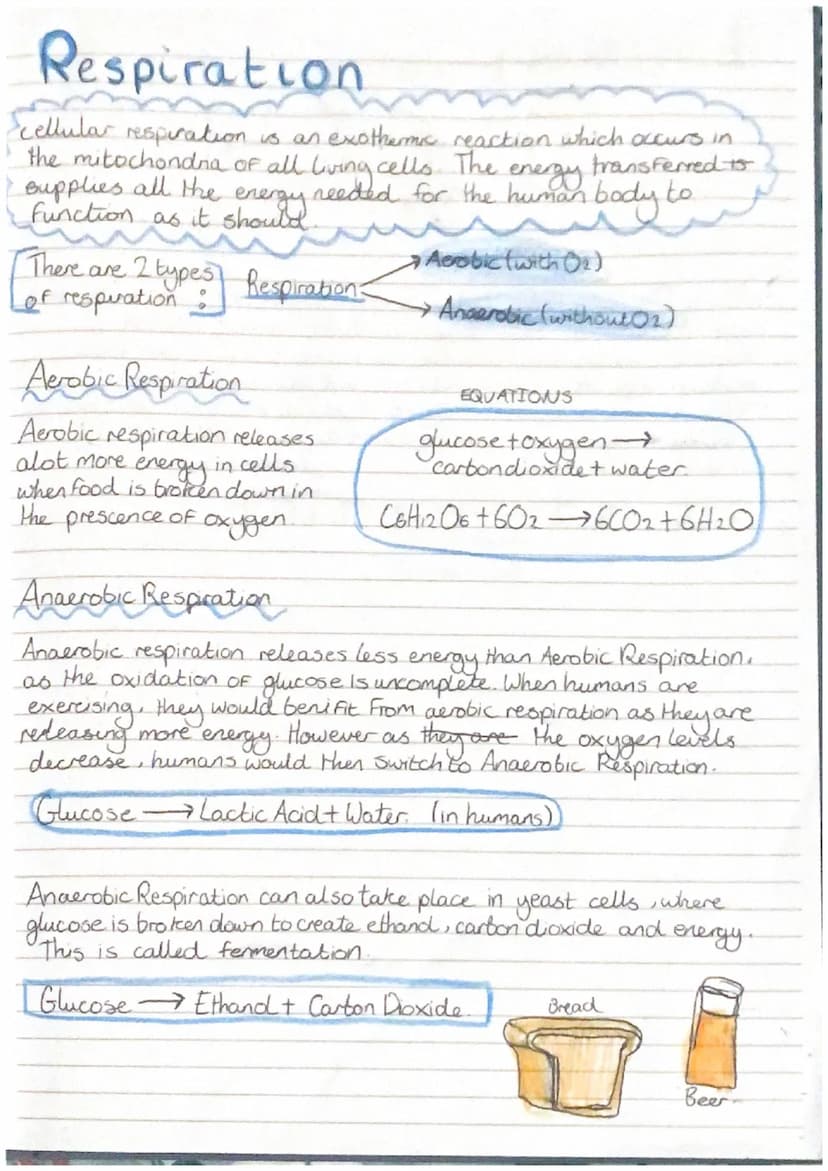 Respiration
cellular respiration is an exothermic reaction which occurs in
the mitochondria of all living cells. The energy transferred is
supplies all the energy needed for the human body to
function as it should.
There are 2 types
of respiration :
Respiration
Aerobic (with O2)
Anaerobic (without O2)
Aerobic Respiration
Aerobic respiration releases
alot more energy in cells
when food is broken down in
the prescence of oxygen
EQUATIONS
glucose + oxygen →
carbon dioxide + water
C6H12O6 + 6O2 → 6CO2 + 6H2O
Anaerobic Respiration
Anaerobic respiration releases less energy than Aerobic Respiration,
as the oxidation of glucose is uncomplete. When humans are
exercising, they would benifit from aerobic respiration as they are
releasing more energy. However as they are the oxygen levels
decrease, humans would then switch to Anaerobic Respiration.
Glucose → Lactic Acid + Water. (in humans)
Anaerobic Respiration can also take place in yeast cells, where
glucose is broken down to create ethanol, carbon dioxide and energy.
This is called fermentation.
Glucose → Ethanol + Carbon Dioxide.
Bread
Beer